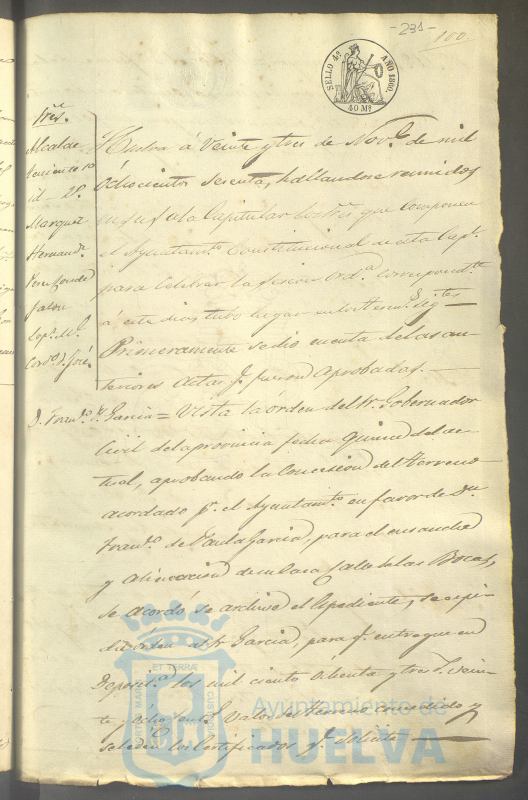 -231-
100.
SELLO 4º AÑO 1860.
40 Ms
Sres.
Alcalde
Teniente 1º
id 2º
Marquez
Hernandz
Jalon
Cordo. D. José
Huelva á Veinte y tres de Nove. de mil
Ochocientos Sesenta, hallandose reunidos
en su Sala Capitular los Sres. que componen
el Ayuntamto. Constitucional de esta Capl.
para celebrar la sesion Orda. correspondte.
á este dia, tubo lugar en los term.s Sigtes.
Primeramente se dio cuenta de las an-
teriores actas q. fueron aprobadas.
D. Frando. P. Garcia = Vista la órden del Sr. Gobernador
Civil de la provincia fecha quince del ac-
tual, aprobando la Concesion del terreno
acordado pr. el Ayuntamto. en favor de Dn.
Franco. de Paula Garcia, para el ensanche
y alineacion de su Casa Calle de las Bocas,
se acordó se archive el Espediente, se espi-
da orden al Sr. Garcia, para q. entregue en
Deposita. los mil ciento ochenta y tres rs. vein-
te y ocho cents. valor del terreno concedido y
se le dén los Certificados q. solicite
Ayuntamiento de
HUELVA